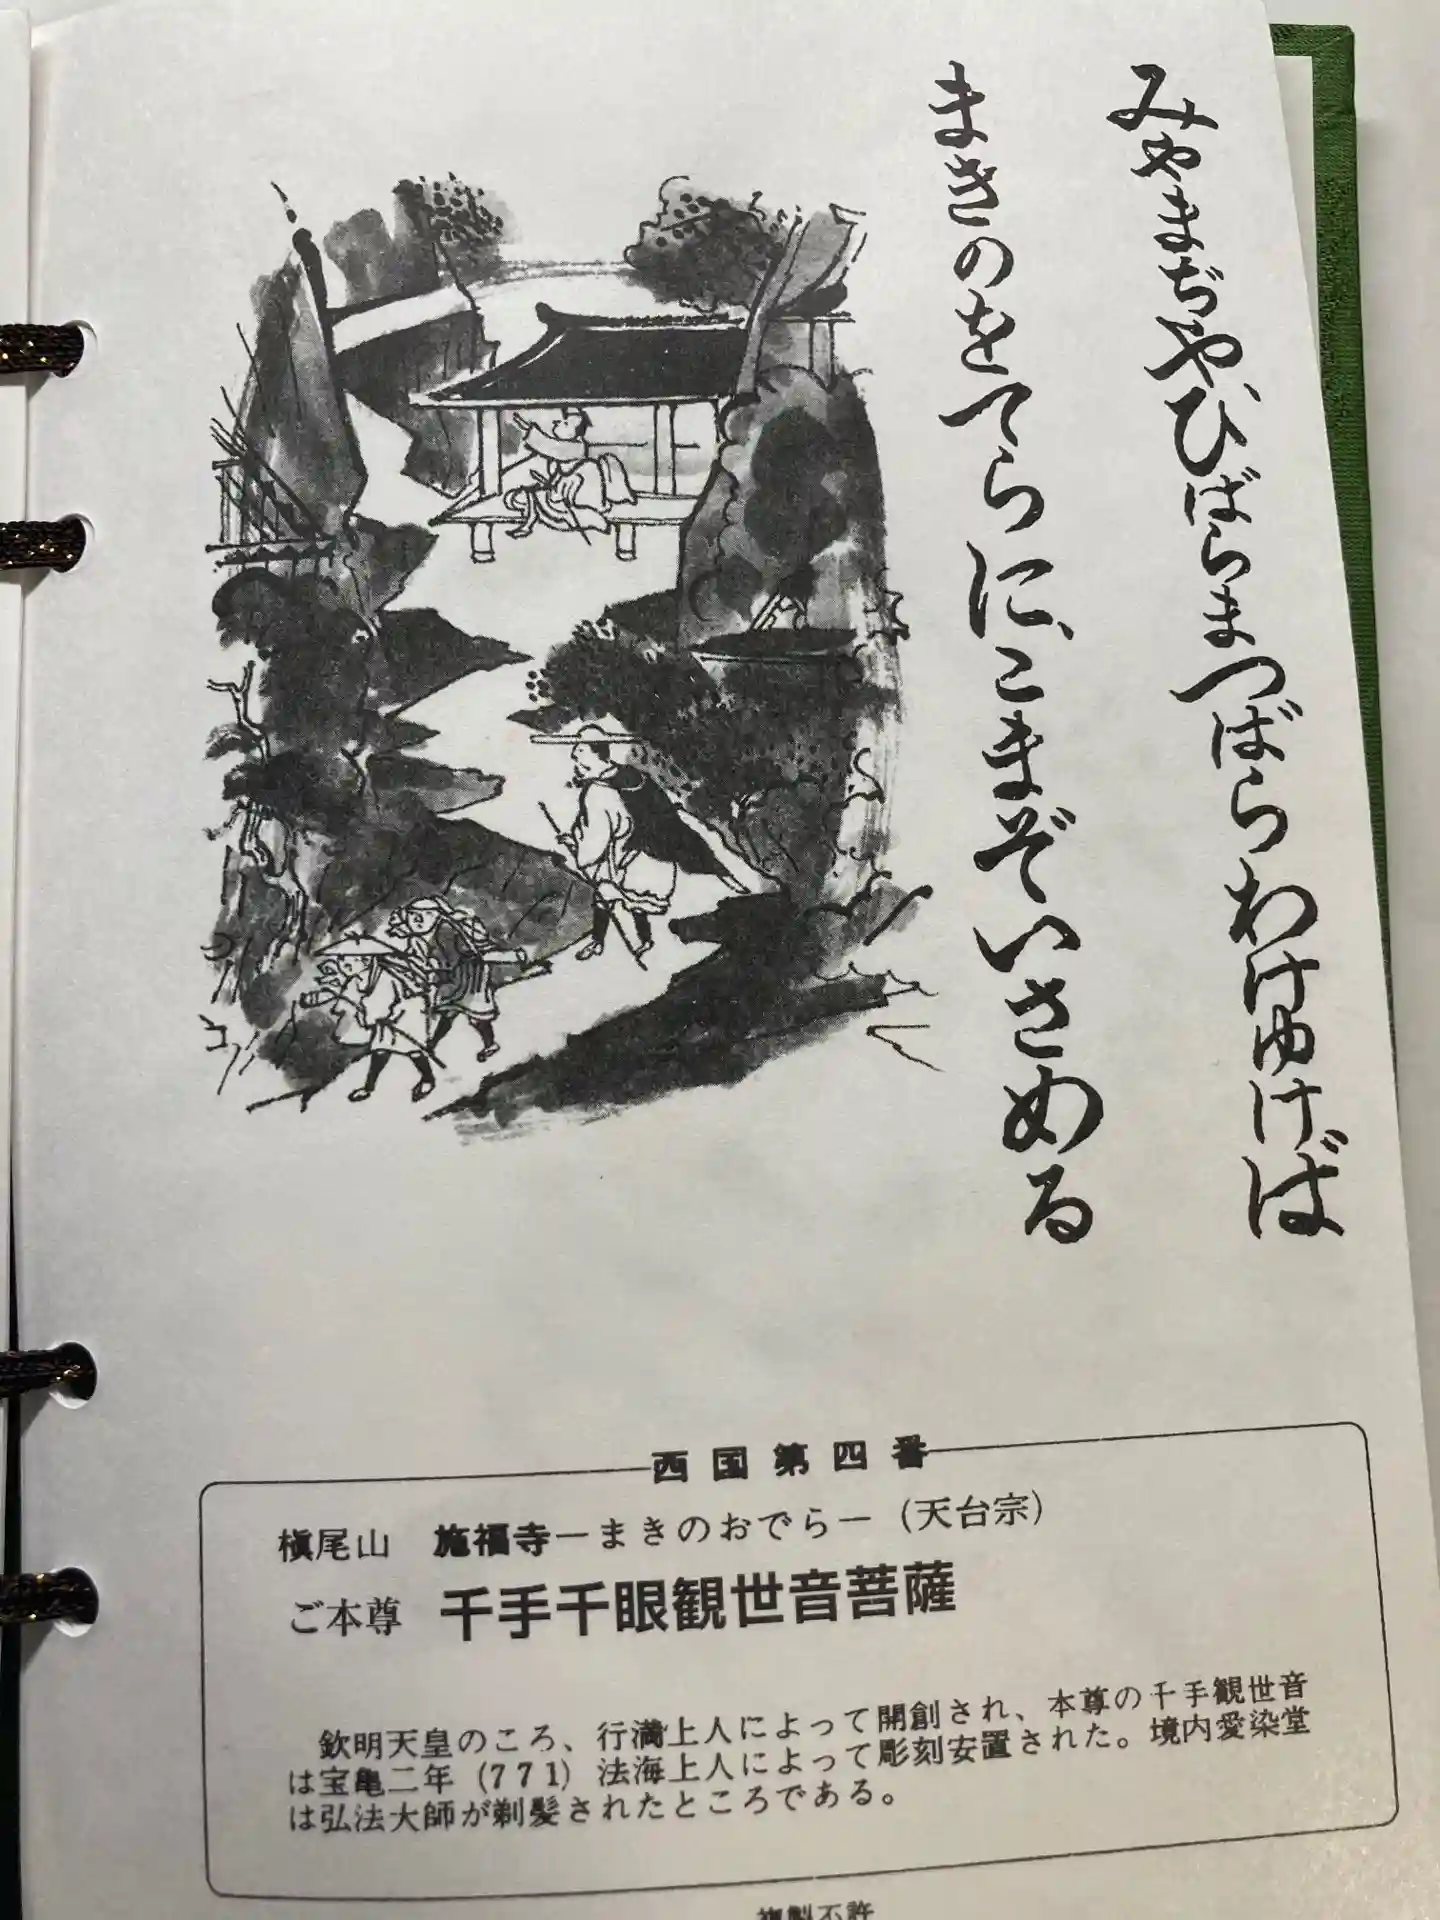 みやまぢや、ひばらまつばらわけゆけば
まきのをてらに、こまぞいさめる
西国第四番
槇尾山 施福寺―まきのおでら―(天台宗)
ご本尊 千手千眼観世音菩薩
欽明天皇のころ、行満上人によって開創され、本尊の千手観世音
は宝亀二年(771)法海上人によって彫刻安置された。境内愛染堂
は弘法大師が剃髪されたところである。
複製不許